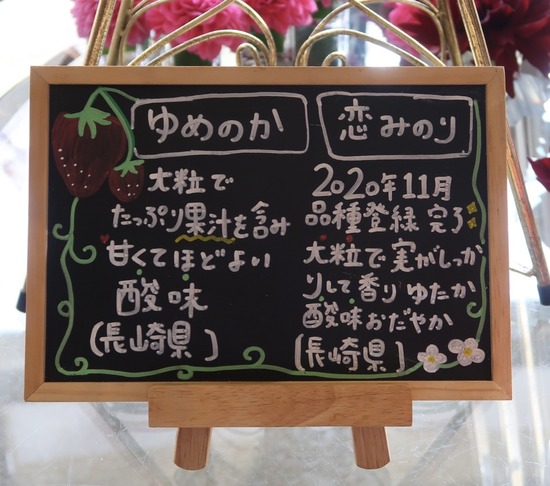 ゆめのか
大粒で
たっぷり果汁を含み
甘くてほどよい
酸味
(長崎県)
恋みのり
2020年11月
品種登録完了
大粒で実がしっか
りして香りゆたか
酸味おだやか
(長崎県)